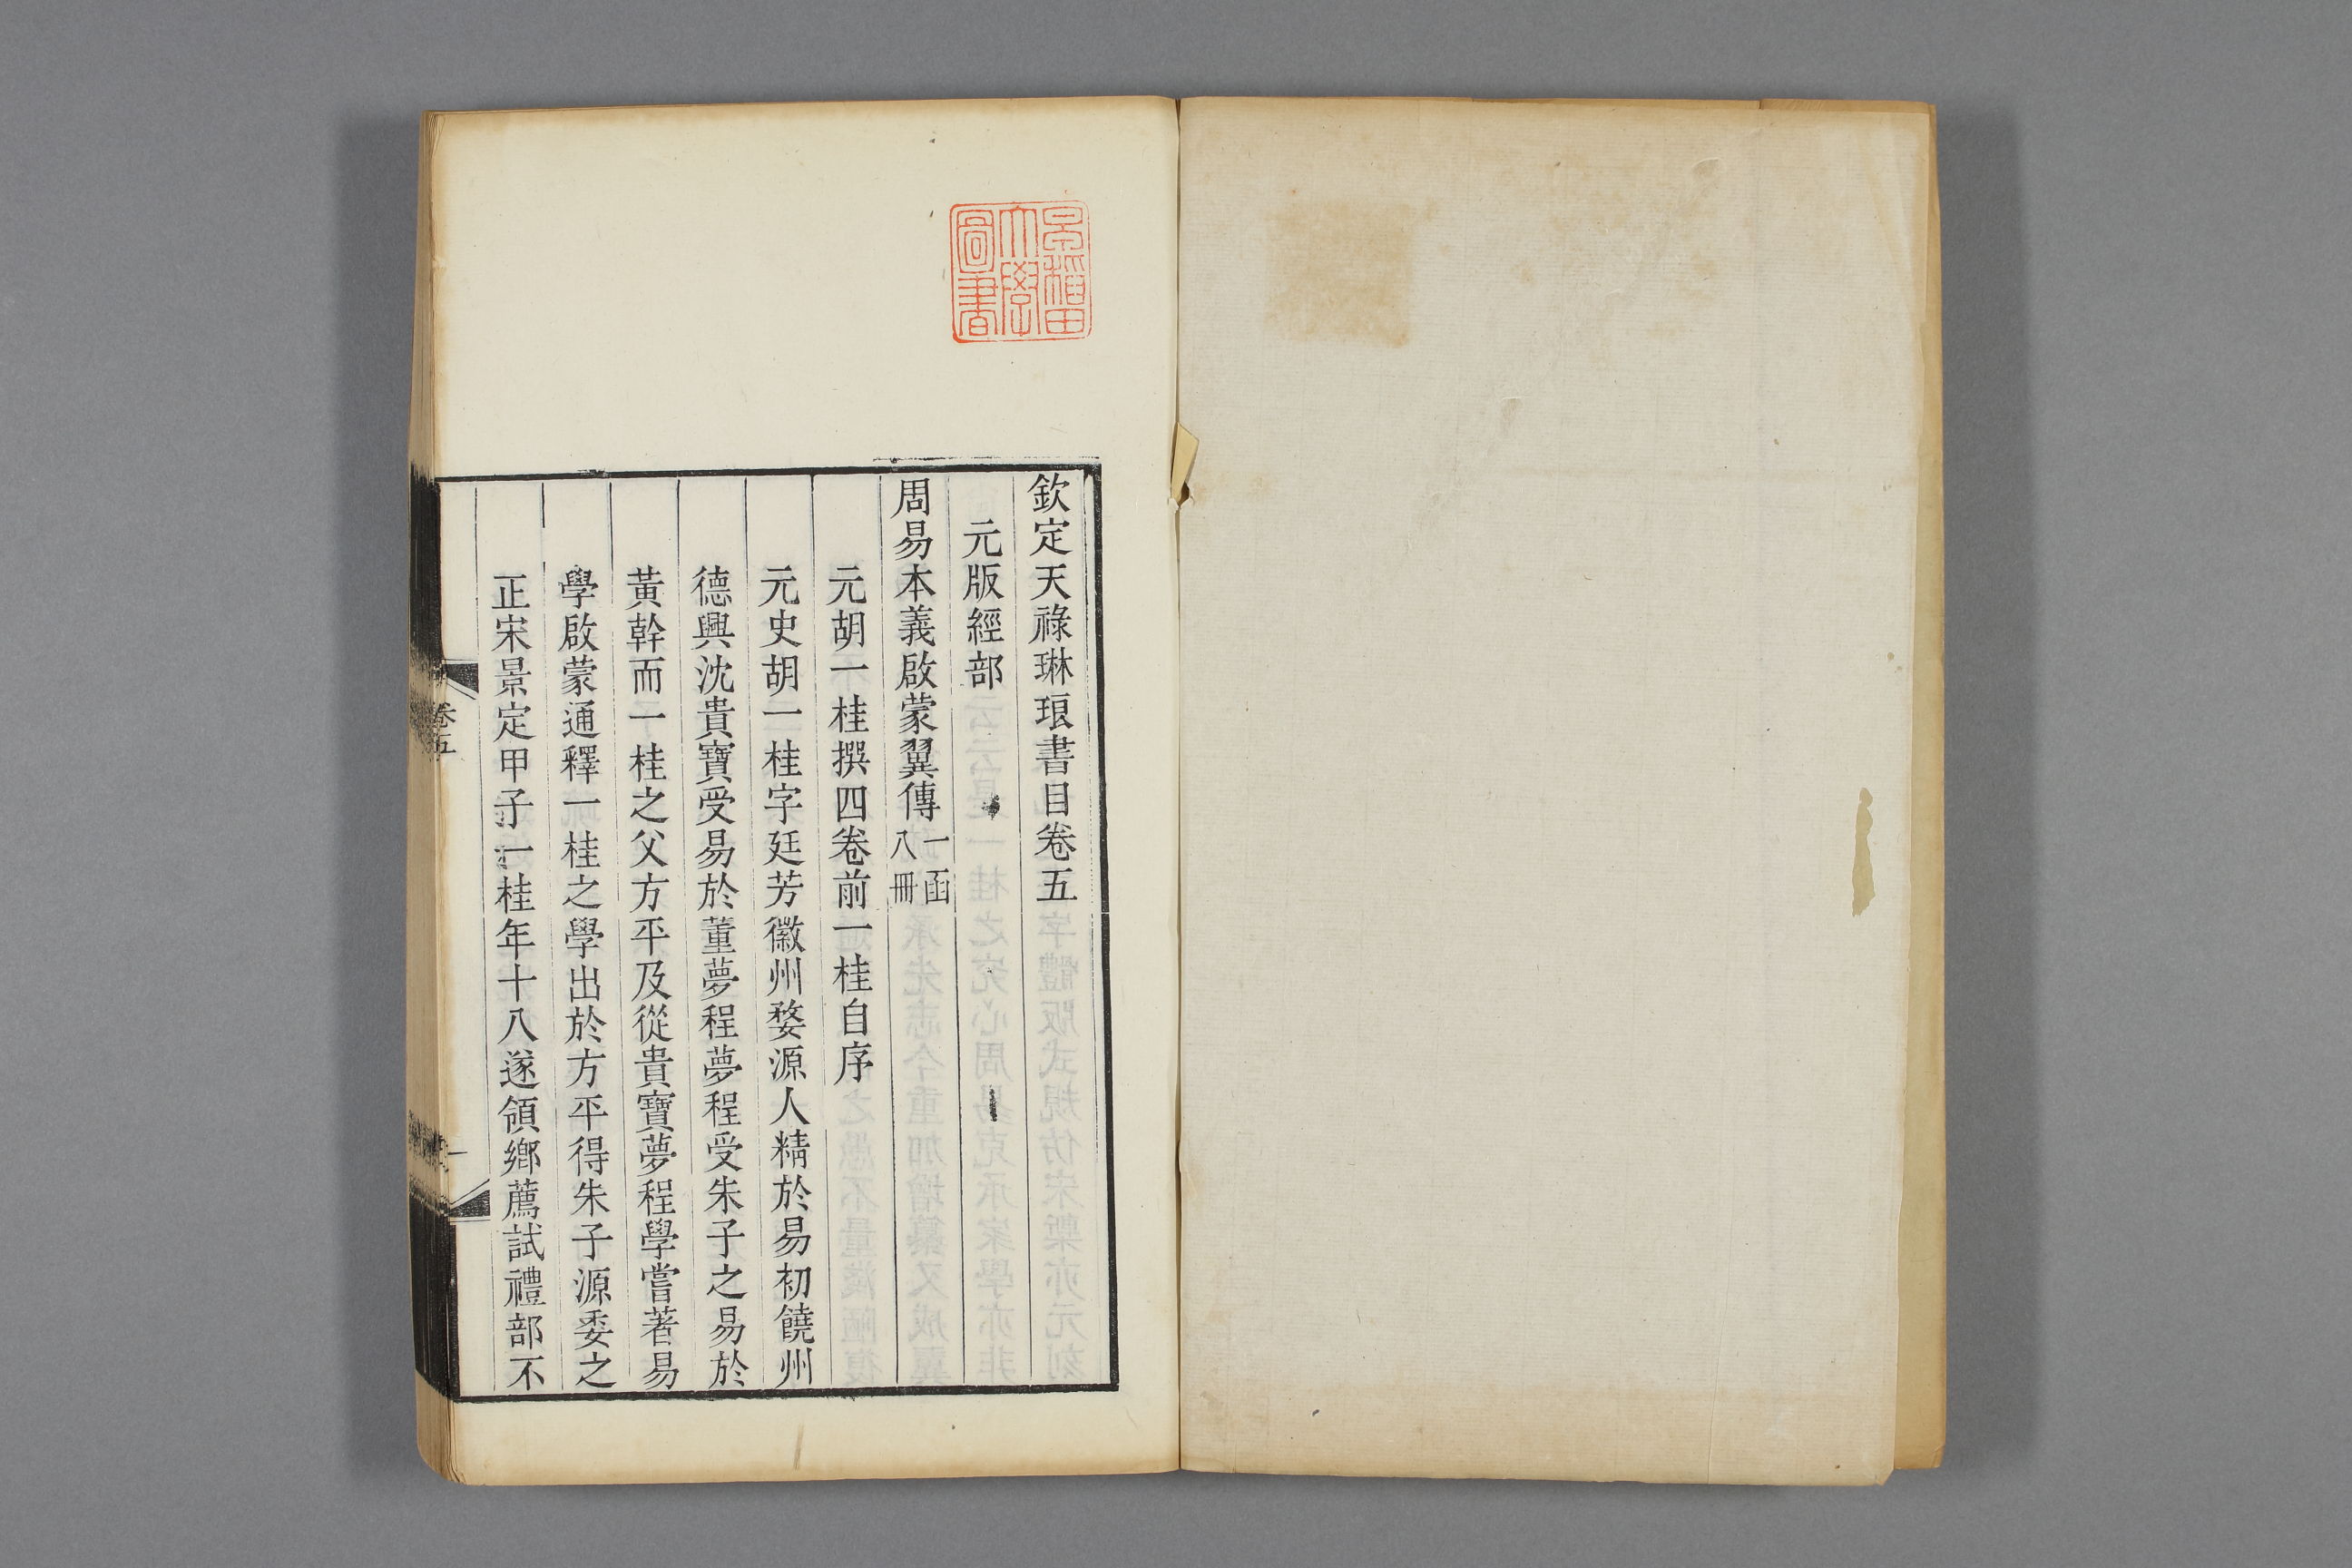 欽定天祿琳琅書目卷五
元版經部
周易本義啟蒙翼傳一函八冊
元胡一桂撰四卷前一桂自序
元史胡一桂字廷芳徽州婺源人精於易初饒州
德興沈貴寶受易於董夢程夢程受朱子之易於
黃幹而一桂之父方平及從貴寶夢程學嘗著易
學啟蒙通釋一桂之學出於方平得朱子源委之
正宋景定甲子一桂年十八遂領鄉薦試禮部不
卷五
一
早稻田
大學
圖書